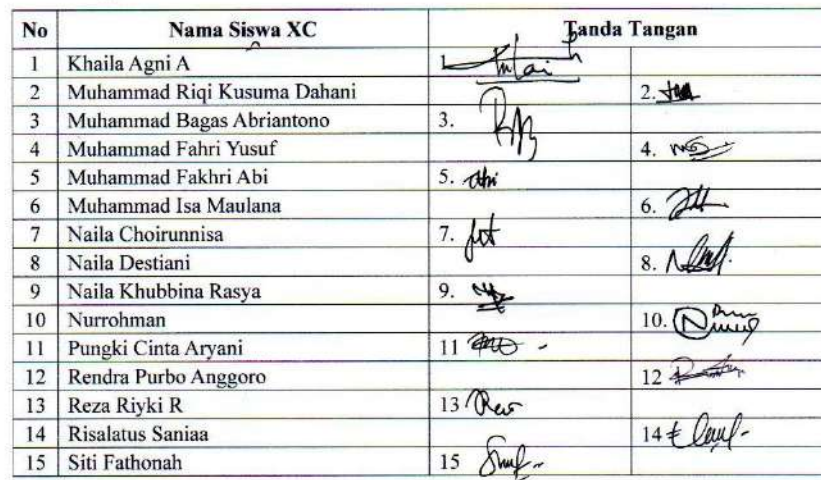 No Nama Siswa XC Tanda Tangan
1 Khaila Agni A 1
2 Muhammad Riqi Kusuma Dahani 2.
3 Muhammad Bagas Abriantono 3.
4 Muhammad Fahri Yusuf 4.
5 Muhammad Fakhri Abi 5.
6 Muhammad Isa Maulana 6.
7 Naila Choirunnisa 7.
8 Naila Destiani 8.
9 Naila Khubbina Rasya 9.
10 Nurrohman 10.
11 Pungki Cinta Aryani 11
12 Rendra Purbo Anggoro 12
13 Reza Riyki R 13
14 Risalatus Saniaa 14
15 Siti Fathonah 15